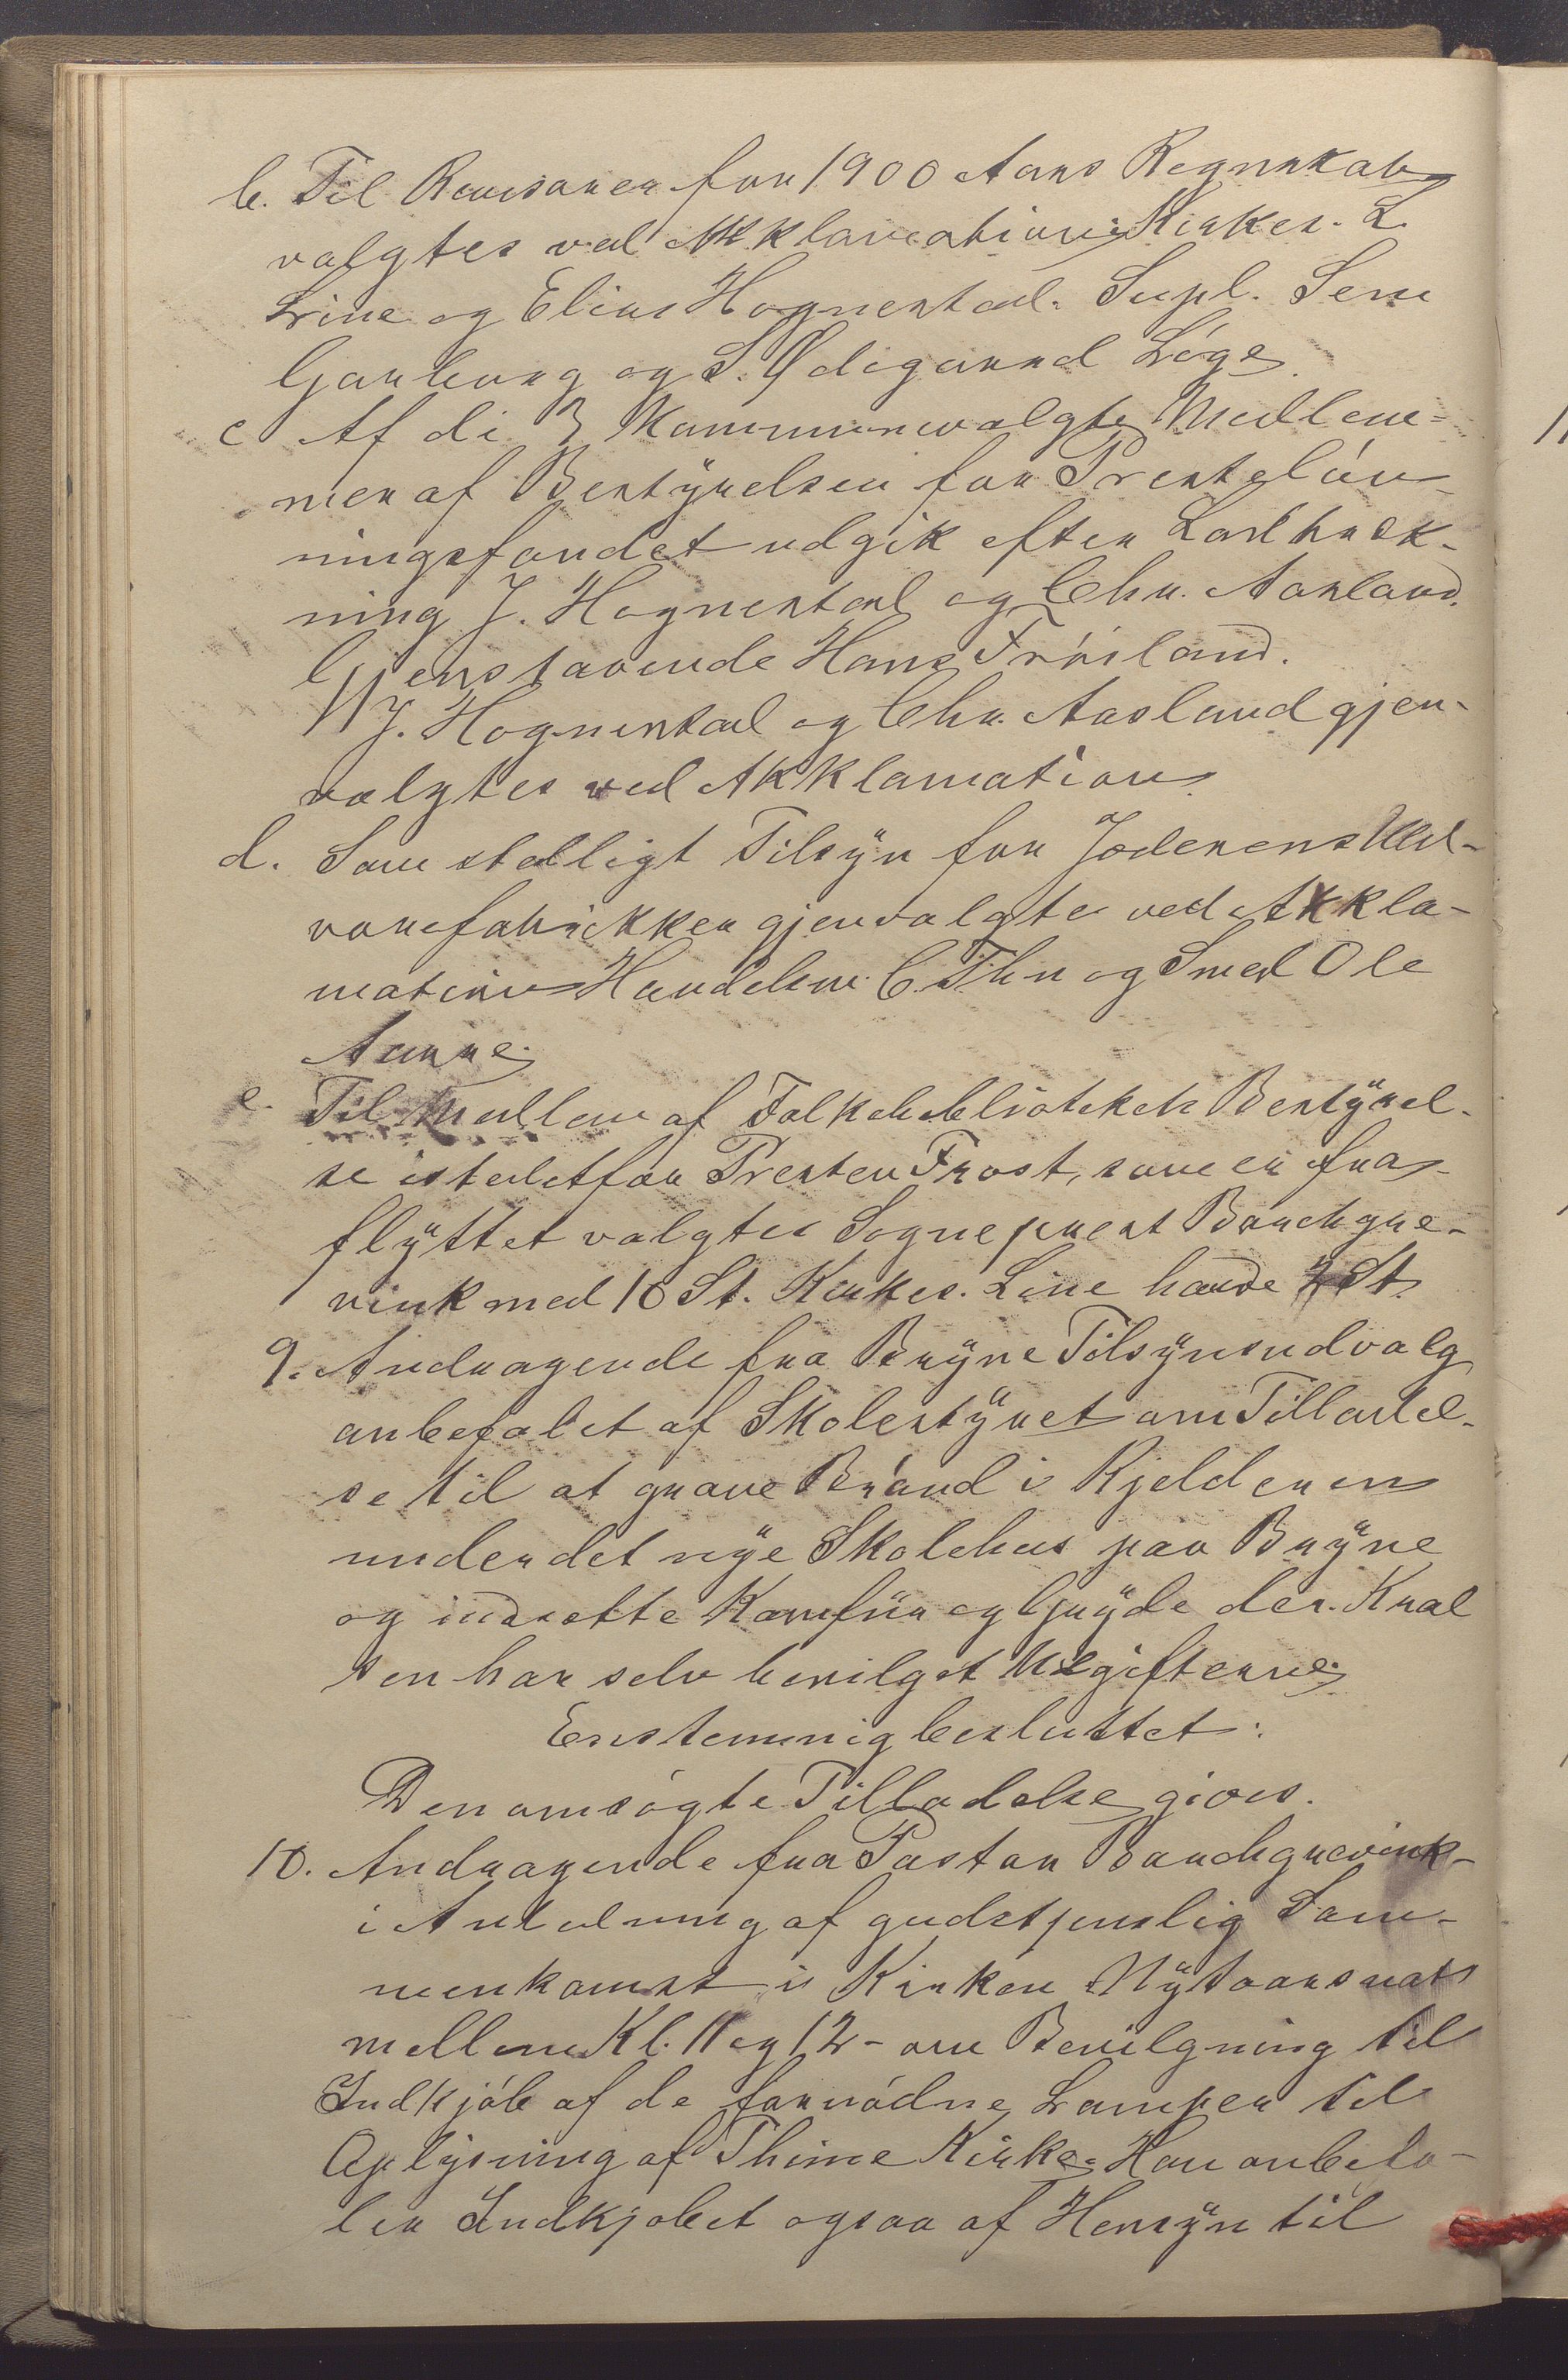 b. Til Revisorer for 1900 Aars Regnskab
valgtes ved Akklamation: Kirkes. L.
Line og Elias Hognestad. Supl. Sem
Garborg og S. Ødegaard Løge.
c Af de 3 Kommunevalgte Medlem-
mer af Bestyrelsen for Presteløn-
ningsfondet udgik efter Lodtræk-
ning J. Hognestad og Chr. Aasland.
Gjenstaaende Hans Frøiland.
J. Hognestad og Chr. Aasland gjen-
valgtes ved Akklamation.
d. Som stedligt Tilsyn for Jæderens Uld-
varefabrikker gjenvalgtes ved Akkla-
mation Handelsm. C. Thu og Smed Ole
Aanne.
e. Til Medlem af Folkebibliotekets Bestyrel-
se istedetfor Presten Frost, som er fra-
flyttet valgtes Sogneprest Bandgre-
vink med 10 St. Kirkes. Line havde 2 St.
9. Andragende fra Bryne Tilsynsudvalg
anbefalet af Skolestyret om Tilladel-
se til at grave Brønd i Kjelderen
under det nye Skolehus paa Bryne
og indsette Komfur og Gryde der. Kred
sen har selv bevilget Udgifterne.
Enstemmig besluttet:
Den ansøgte Tilladelse gives.
10. Andragende fra Pastor Bandgrevink
i Anledning af gudstjenslig Sam-
menkomst i Kirken Nytaarsnat
mellem Kl. 11 og 12 - om Bevilgning til
Indkjøb af de fornødne Lamper til
Oplysning af Thime Kirke. Han anbefa-
ler Indkjøbet ogsaa af Hensyn til